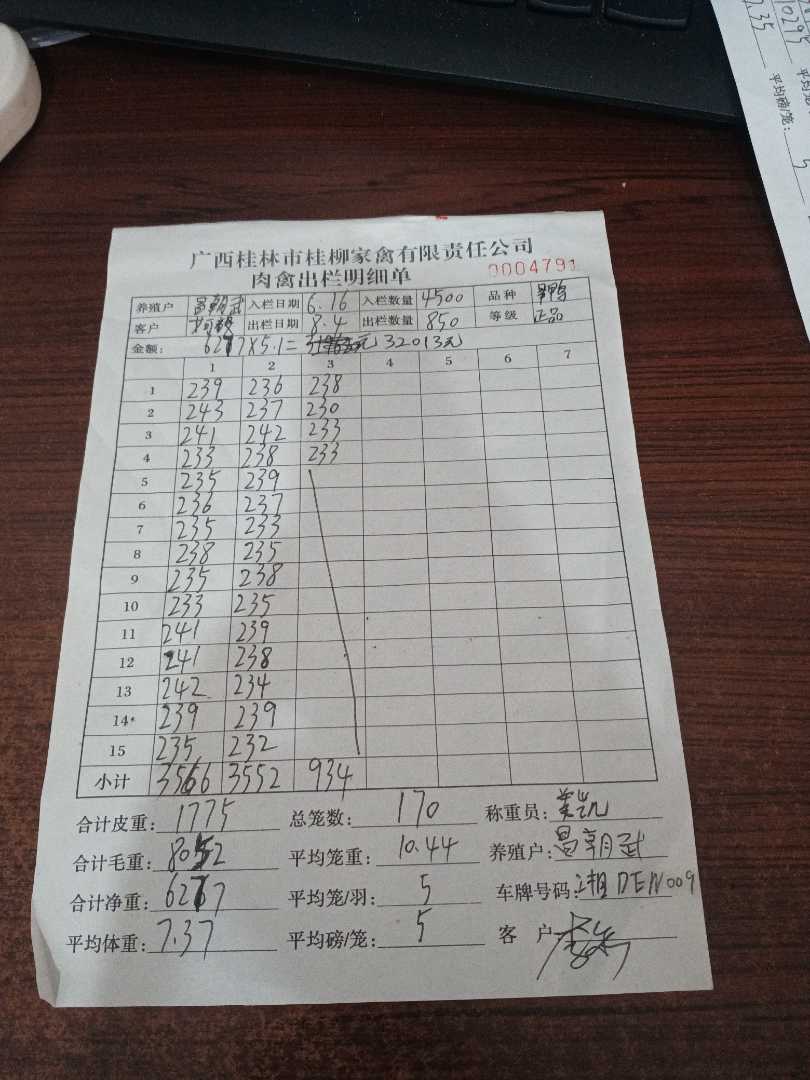 10295
7.35
平均磅/笼: 5
广西桂林市桂柳家禽有限责任公司
肉禽出栏明细单 0004791
养殖户 入栏日期 6.16 入栏数量 4500 品种
客户 出栏日期 8.4 出栏数量 850 等级 正品
金额: 6277×5.1= 32013元
1 2 3 4 5 6 7
1 239 236 238
2 243 237 230
3 241 242 233
4 233 238 233
5 235 239
6 236 237
7 235 233
8 238 235
9 235 238
10 233 235
11 241 239
12 241 238
13 242 234
14* 239 239
15 235 232
小计 3566 3552 934
合计皮重: 1775 总笼数: 170 称重员:
合计毛重: 8052 平均笼重: 10.44 养殖户:
合计净重: 6277 平均笼/羽: 5 车牌号码:
平均体重: 7.37 平均磅/笼: 5 客 户